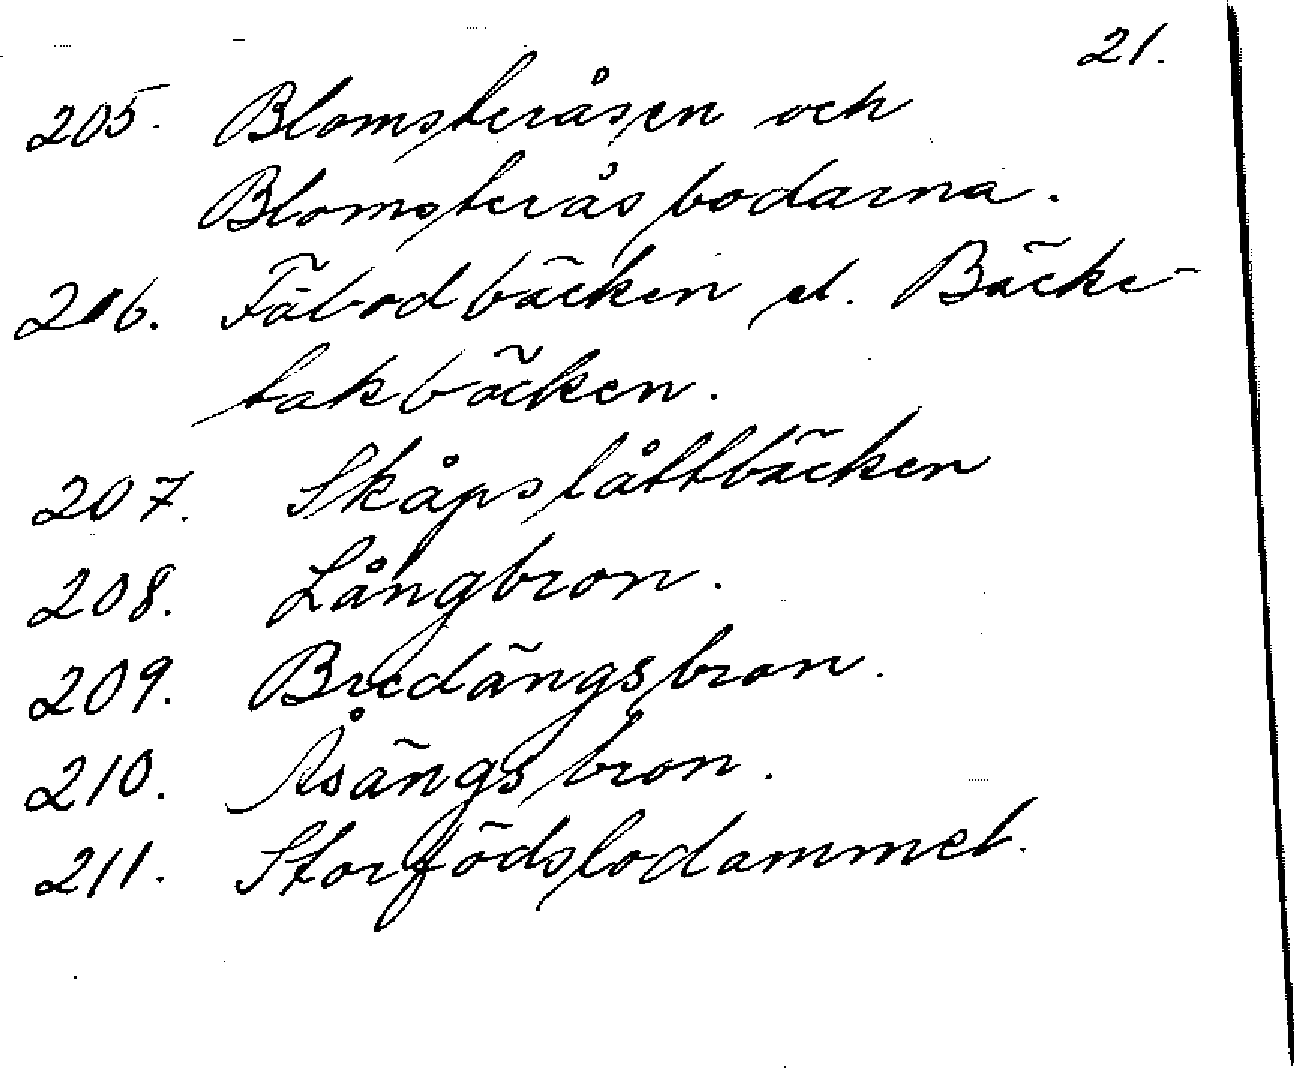 21.
205. Blomsteråsen och
Blomsterås bodarna.
206. Fäbodbäcken el. Bäcke-
takbäcken.
207. Skåpslåttbäcken
208. Långbron.
209. Bredängsbron.
210. Åsängsbron.
211. Storfödslodammet.